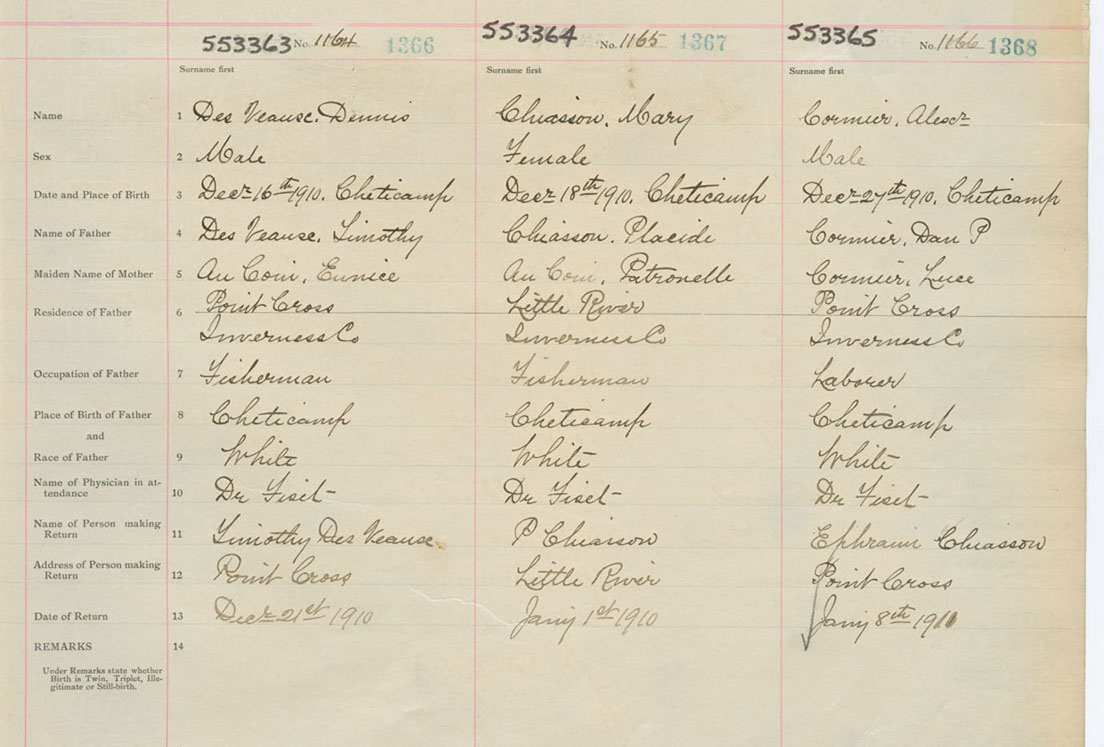 553363 No. 1164 1366 553364 No. 1165 1367 553365 No. 1166 1368
Surname first Surname first Surname first
Name 1 Des Veause. Dennis Chiasson, Mary Cormier, Alexr
Sex 2 Male Female Male
Date and Place of Birth 3 Decr 16th 1910. Cheticamp Decr 18th 1910. Cheticamp Decr 27th 1910. Cheticamp
Name of Father 4 Des Veause. Timothy Chiasson. Placide Cormier, Dan P
Maiden Name of Mother 5 Au Coin, Eunice Au Coin, Patronelle Cormier, Luce
Residence of Father 6 Point Cross Little River Point Cross
Inverness Co Inverness Co Inverness Co
Occupation of Father 7 Fisherman Fisherman Laborer
Place of Birth of Father 8 Cheticamp Cheticamp Cheticamp
and
Race of Father 9 White White White
Name of Physician in at-
tendance 10 Dr Fiset Dr Fiset Dr Fiset
Name of Person making
Return 11 Timothy Des Veause P Chiasson Ephraim Chiasson
Address of Person making
Return 12 Point Cross Little River Point Cross
Date of Return 13 Decr 21st 1910 Jany 1st 1910 Jany 8th 1911
REMARKS 14
Under Remarks state whether
Birth is Twin, Triplet, Ille-
gitimate or Still-birth.